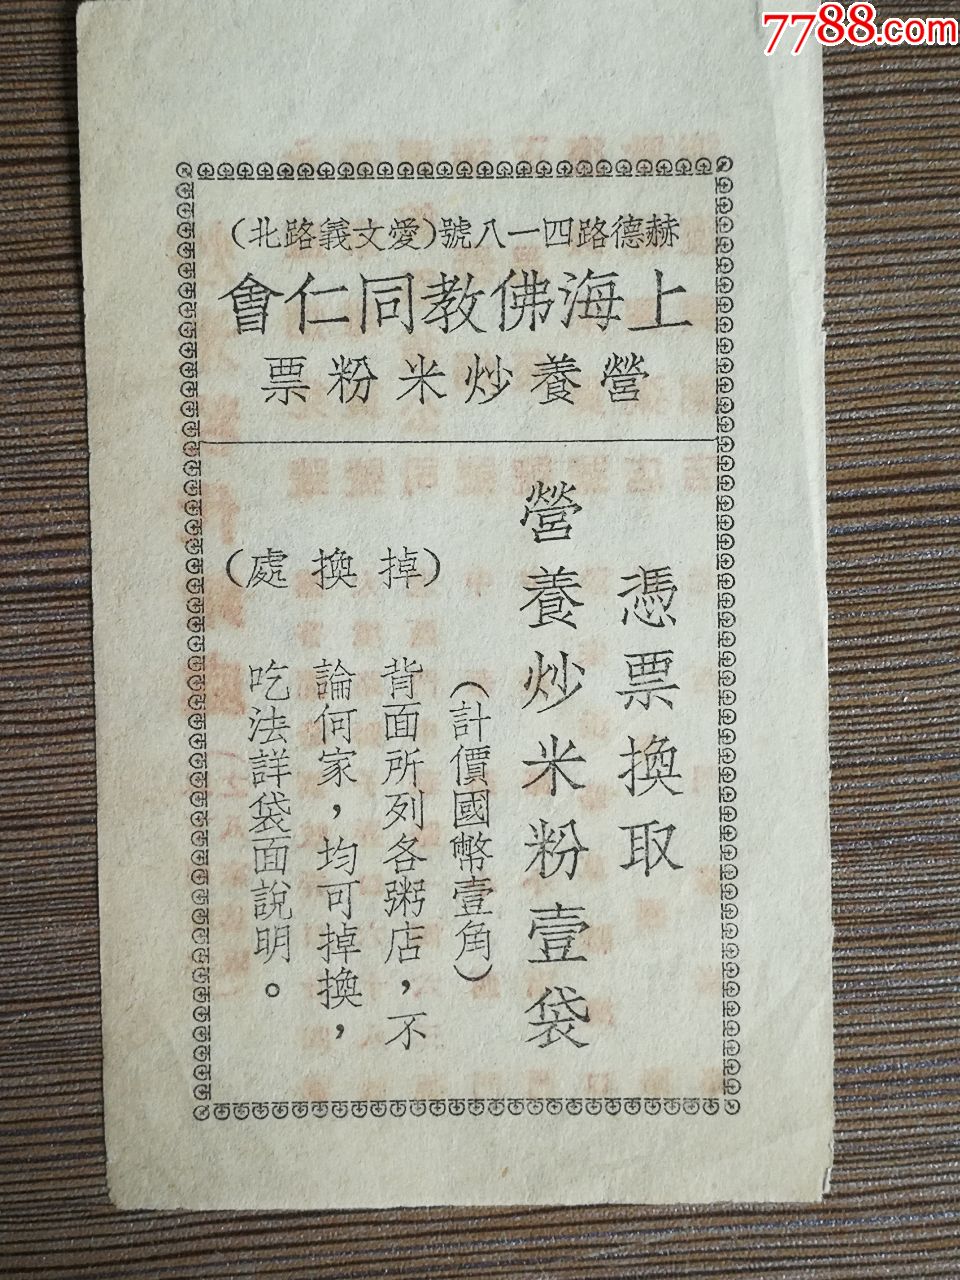 7788.com
赫德路四一八號(愛文義路北)
上海佛教同仁會
營養炒米粉票
憑票換取
營養炒米粉壹袋
(計價國幣壹角)
(掉換處)
背面所列各粥店，不
論何家，均可掉換，
吃法詳袋面說明。